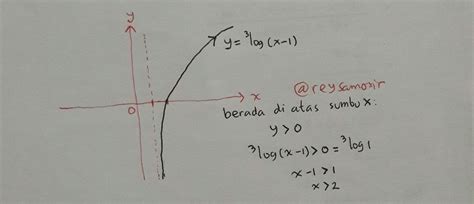 y
y = ³log (x-1)
x
0
@reysamosir
berada di atas sumbu x:
y > 0
³log (x-1) > 0 = ³log 1
x-1 > 1
x > 2